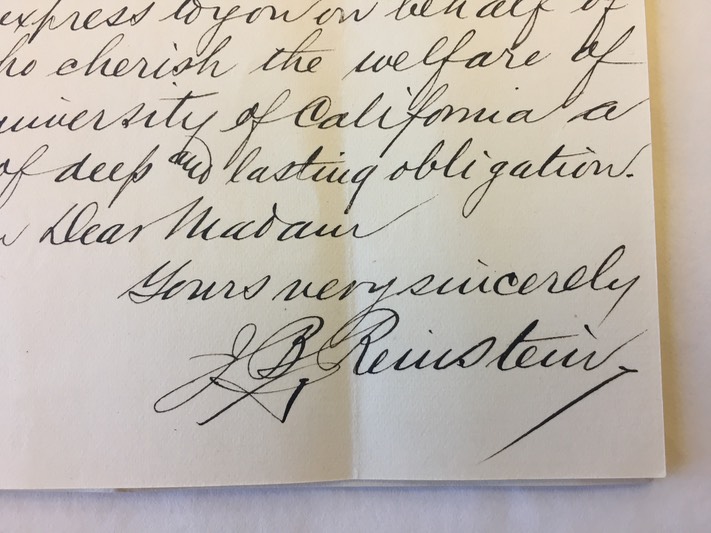 express to you on behalf of
ho cherish the welfare of
university of California a
of deep and lasting obligation.
Dear Madam
Yours very sincerely
J. B. Reinstein